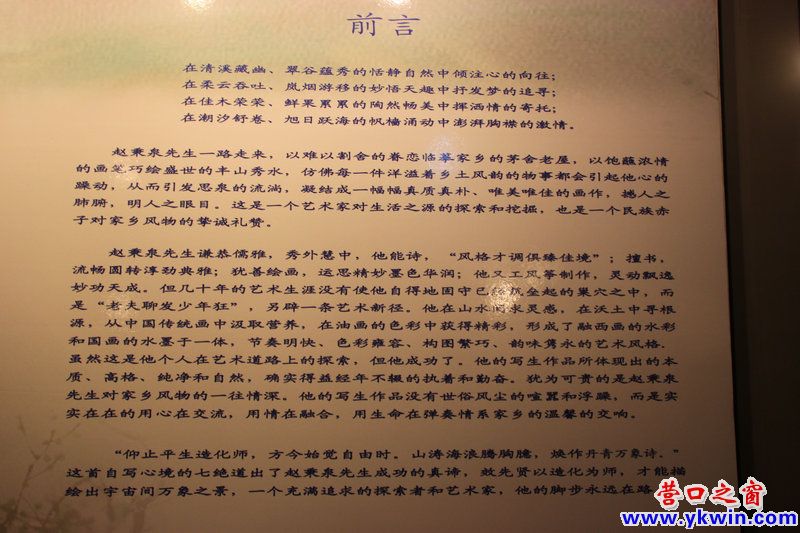 前言
在清溪藏幽、翠谷蕴秀的恬静自然中倾注心的向往；
在柔云吞吐、岚烟游移的妙悟天趣中抒发梦的追寻；
在佳木荣荣、鲜果累累的陶然畅美中挥洒情的寄托；
在潮汐舒卷、旭日跃海的帆樯涌动中澎湃胸襟的激情。
赵秉泉先生一路走来，以难以割舍的眷恋临摹家乡的茅舍老屋，以饱蘸浓情
的画笔巧绘盛世的丰山秀水，仿佛每一件洋溢着乡土风韵的物事都会引起他心的
躁动，从而引发思泉的流淌，凝结成一幅幅真质真朴、唯美唯佳的画作，撼人之
肺腑，明人之眼目。这是一个艺术家对生活之源的探索和挖掘，也是一个民族赤
子对家乡风物的挚诚礼赞。
赵秉泉先生谦恭儒雅，秀外慧中，他能诗，“风格才调俱臻佳境”；擅书，
流畅圆转淳劲典雅；犹善绘画，运思精妙墨色华润；他又工风筝制作，灵动飘逸
妙功天成。但几十年的艺术生涯没有使他自得地固守已经筑垒起的巢穴之中，而
是“老夫聊发少年狂”，另辟一条艺术新径。他在山水间求灵感，在沃土中寻根
源，从中国传统画中汲取营养，在油画的色彩中获得精彩，形成了融西画的水彩
和国画的水墨于一体，节奏明快、色彩雍容、构图繁巧、韵味隽永的艺术风格.
虽然这是他个人在艺术道路上的探索，但他成功了。他的写生作品所体现出的本
质、高格、纯净和自然，确实得益经年不辍的执着和勤奋。犹为可贵的是赵秉泉
先生对家乡风物的一往情深。他的写生作品没有世俗风尘的喧嚣和浮躁，而是实
实在在的用心在交流，用情在融合，用生命在弹奏情系家乡的温馨的交响。
“仰止平生造化师，方今始觉自由时。山涛海浪腾胸臆，焕作丹青万象诗。”
这首自写心境的七绝道出了赵秉泉先生成功的真谛，效先贤以造化为师，才能描
绘出宇宙间万象之景，一个充满追求的探索者和艺术家，他的脚步永远在路
营口之窗
www.ykwin.com